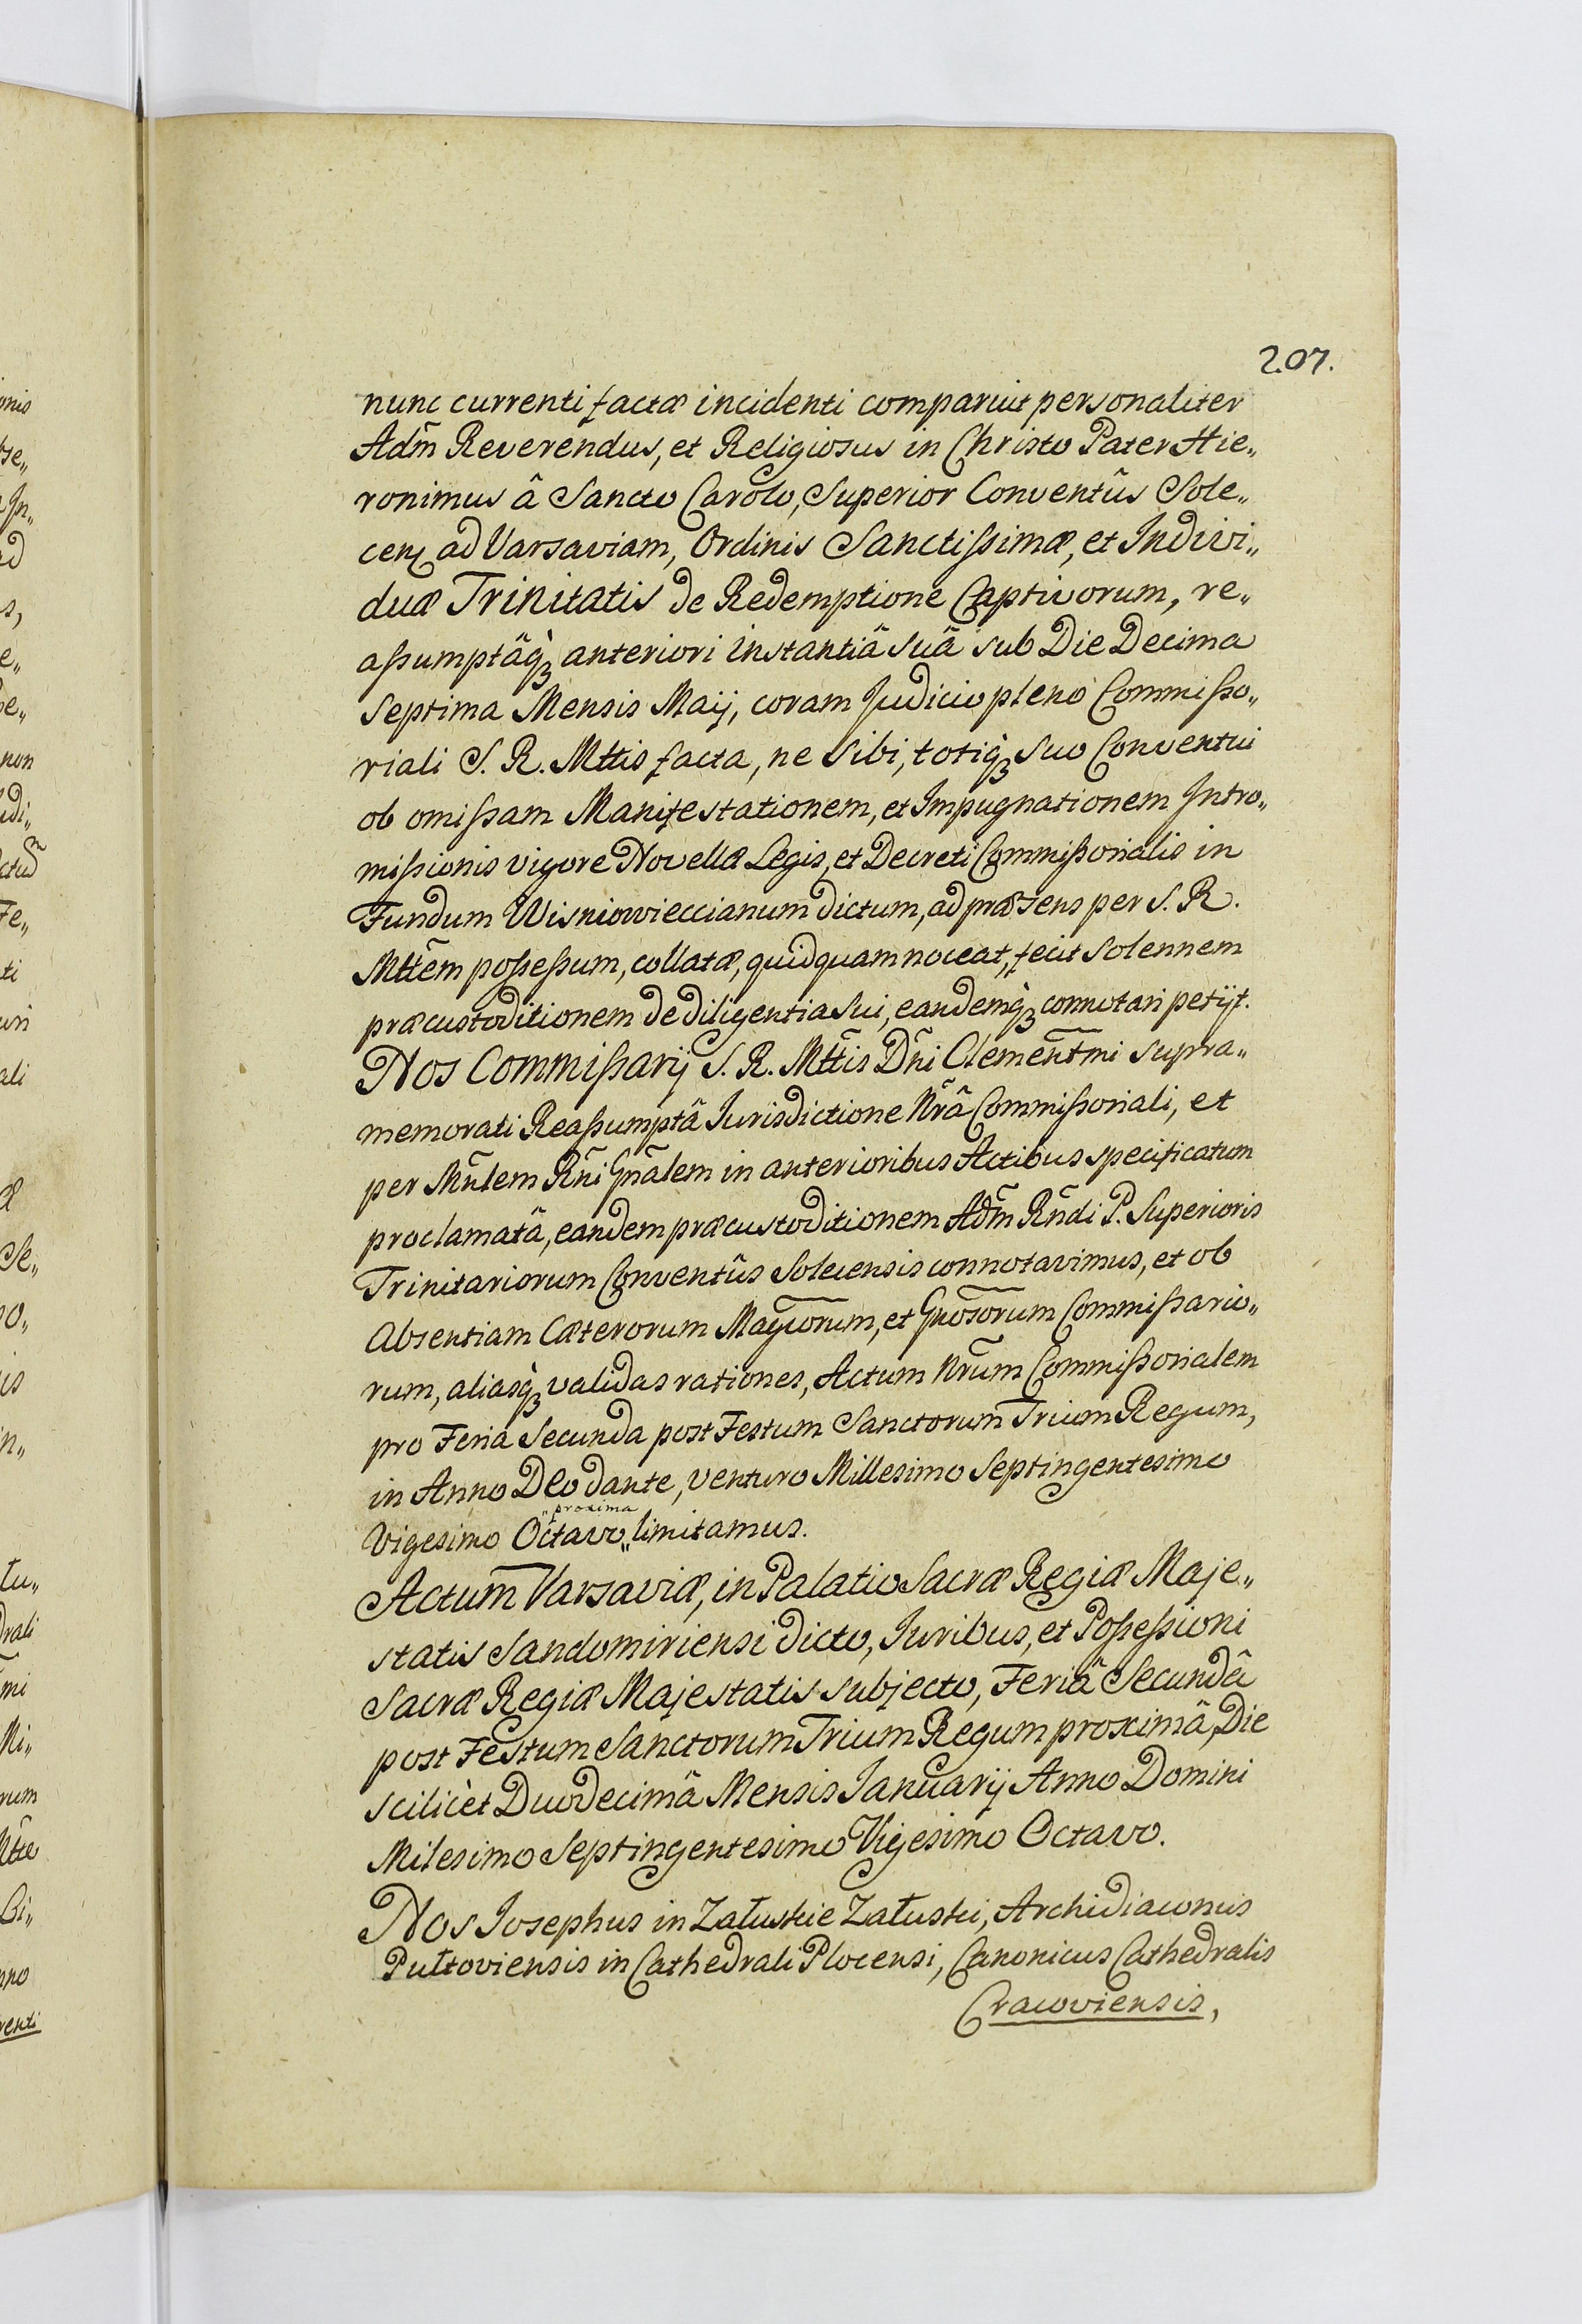 207.
nunc currenti factæ incidenti comparuit personaliter
Adm̃ Reverendus, et Religiosus in Christo Pater Hie„
ronimus â Sancto Carolo, Superior Conventûs Sole„
cen̄ ad Varsaviam, Ordinis Sanctißimæ, et Indivi„
duæ Trinitatis de Redemptione Captivorum, re„
aßumptâq̀ꝫ anteriori instantiâ suâ sub Die Decima
Septima Mensis Maij, coram Judicio pleno Commißo„
riali S. R. Mttis facta, ne sibi, totiq̀ꝫ suo Conventui
ob omißam Manifestationem, et Impugnationem Intro„
mißionis vigore Novellæ Legis, et Decreti Commißorialis in
Fundum Wisniowieccianum dictum, ad præsens per S. R.
Mttem poßeßum, collatæ, quidquam noceat, fecit solennem
præcustoditionem de diligentia sui, eandemq̀ꝫ connotari petijt.
Nos Commißarij S. R. Mttis Dñi Clementmi supra„
memorati Reaßumptâ Jurisdictione Nrâ Commißoriali, et
per Mñlem Rñi Gñalem in anterioribus Actibus specificatum
proclamatâ, eandem præcustoditionem Adm̃ Rñdi P. Superioris
Trinitariorum Conventûs Solecensis connotavimus, et ob
Absentiam Cæterorum Magcorum, et Gnosorum Commißario„
rum, aliasq̀ꝫ validas rationes, Actum Nrum Commißorialem
pro Feria Secunda post Festum Sanctorum Trium Regum,
in Anno Deo dante, venturo Millesimo Septingentesimo
„proxima
Vigesimo Octavo„ limitamus.
Actum Varsaviæ, in Palatio Sacræ Regiæ Maje„
statis Sandomiriensi dicto, Juribus, et Poßeßioni
Sacræ Regiæ Majestatis subjecto, Feriâ Secundâ
post Festum Sanctorum Trium Regum proximâ, Die
scilicèt Duodecimâ Mensis Januarij Anno Domini
Milesimo Septingentesimo Vigesimo Octavo.
Nos Josephus in Załuskie Załuski, Archidiaconus
Pułtoviensis in Cathedrali Plocensi, Canonicus Cathedralis
Cracoviensis,